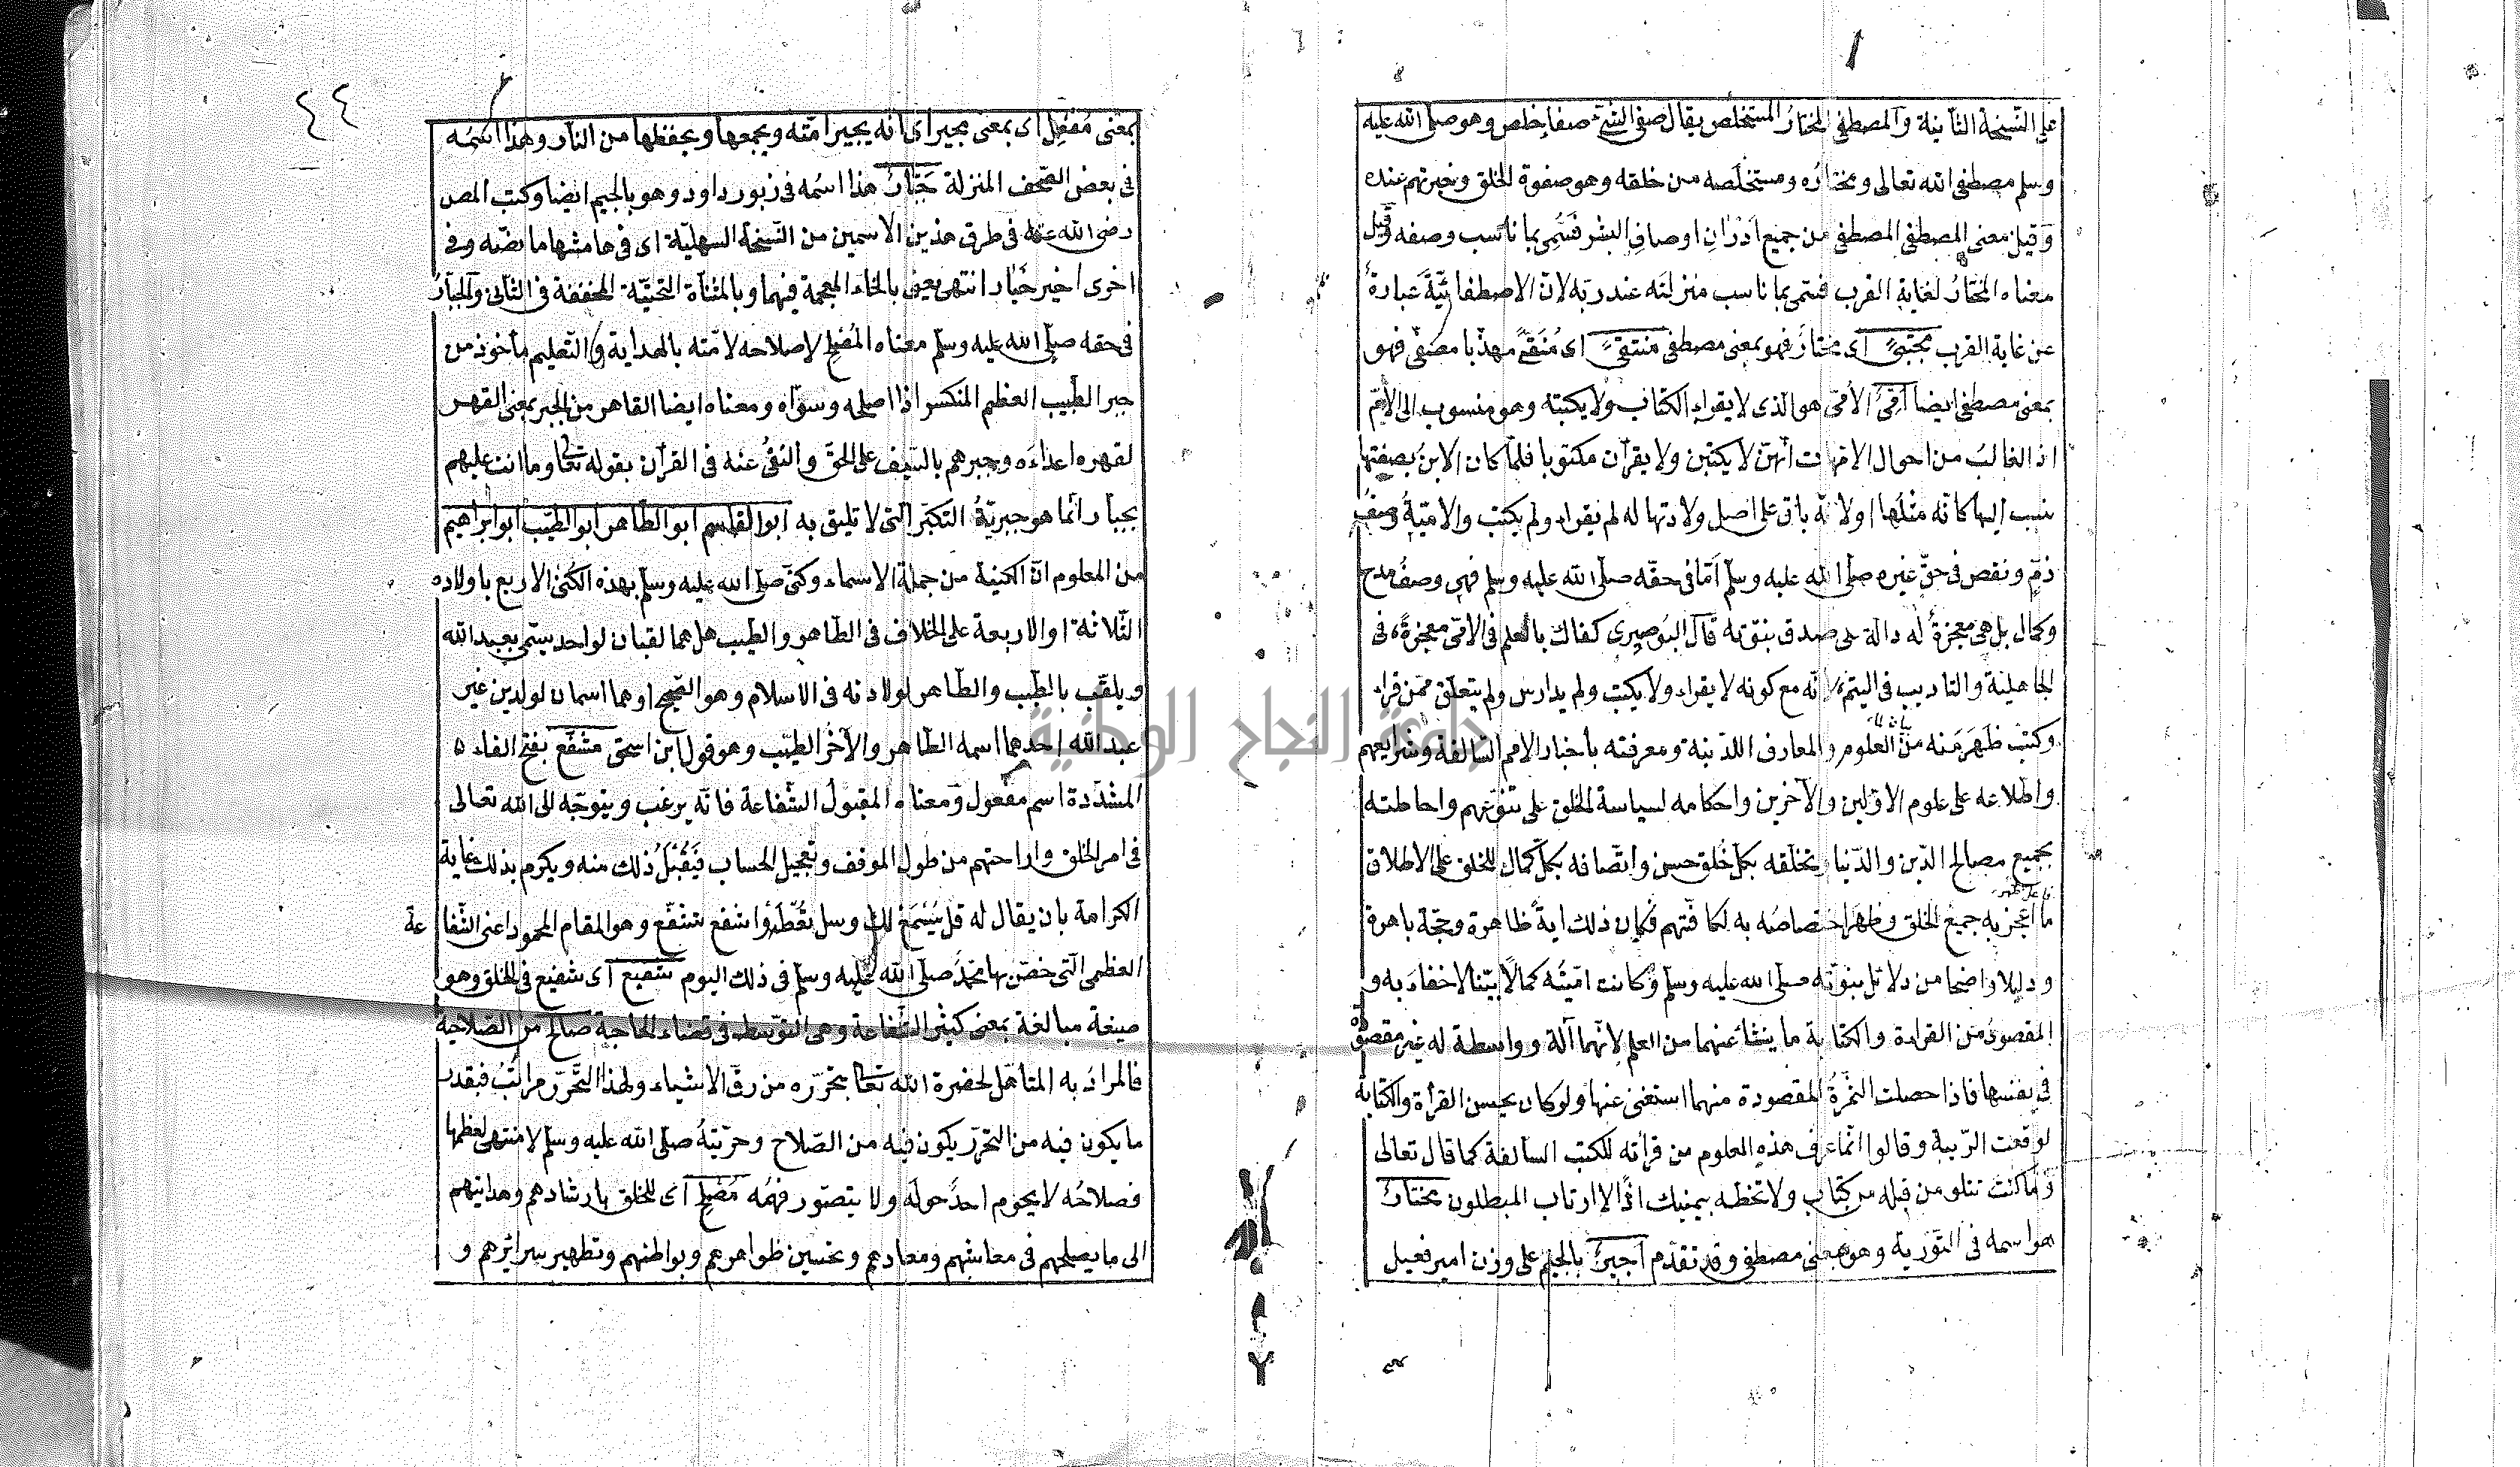 على النسخة الثانية والمصطفى المختار المستخلص يقال صفى الشئ صفا خلص وهو صلى الله عليه
وسلم مصطفى الله تعالى ومختاره ومستخلصه من خلقه وهو صفوة الخلق وخيرتهم عنده
وقيل معنى المصطفى المصطفى من جميع ادران اوصاف البشر فسمى بما ناسب وصفه وقيل
معناه المختار لغاية القرب فسمى بما ناسب منزلته عند ربه لان الاصطفائية عبارة
عن غاية القرب مجتبى اى مختار فهو بمعنى مصطفى منتقى اى منقى مهذبا مصفى فهو
بمعنى مصطفى ايضا امى الامى هو الذى لا يقراء الكتاب ولا يكتبه وهو منسوب الى الام
اذ الغالب من احوال الامهات انهن لا يكتبن ولا يقرأن مكتوبا فلما كان الابن بصفتها
نسب اليها كانه مثلها اولانه باق على اصل ولادتها له لم يقراء ولم يكتب والامية وصف
ذم ونقص فى حق غيره صلى الله عليه وسلم اما فى حقه صلى الله عليه وسلم فهى وصف مدح
وكمال بل هى معجزة له دالة على صدق نبوته قال البوصيرى كفاك بالعلم فى الامى معجزة فى
الجاهلية والتاديب فى اليتم لانه مع كونه لا يقراء ولا يكتب ولم يدارس ولم يتعلق ممن قراء
وكتب ظهر منه من العلوم والمعارف اللدنية ومعرفته باخبار الامم السالفة وشرايعهم
واطلاعه على علوم الاولين والآخرين واحكامه لسياسة الخلق على تنوعهم واحاطته
بجميع مصالح الدين والدنيا وتخلقه بكل خلق حسن واتصافه بكل كمال للخلق على الاطلاق
فاعل ظهر
ما اعجز به جميع الخلق وظهر اختصاصه به لكافتهم فكان ذلك اية ظاهرة وحجة باهرة
ودليلا واضحا من دلائل نبوته صلى الله عليه وسلم وكانت اميته كمالا بينا لا خفاء به و
المقصود من القراءة والكتابة ما ينشأ عنهما من العلم لانهما آلة وواسطة له غير مقصودة
فى نفسها فاذا حصلت الثمرة المقصودة منهما استغنى عنها ولو كان يحسن القرأة والكتابة
لوقعت الريبة وقالوا انما عرف هذه العلوم من قرأته للكتب السالفة كما قال تعالى
وما كنت تتلو من قبله من كتاب ولا تخطه بيمينك اذًا لارتاب المبطلون مختار
هو اسمه فى التورية وهو بمعنى مصطفى وقد تقدم اجير بالجيم على وزن امير فعيل
٤٤
بمعنى مفعل اى بمعنى مجير اى انه يجير امته ويجمعها ويحفظها من النار وهذا اسمه
فى بعض الصحف المنزلة جبار هذا اسمه فى زبور داود وهو بالجيم ايضا وكتب المص
رضى الله عنه فى طرق هذين الاسمين من النسخة السهلية اى فى هامشها ما نصه وفى
اخرى اخير خيار انتهى يعنى بالخاء المعجمة فيهما وبالمثناة التحتية المخففة فى الثانى والجبار
فى حقه صلى الله عليه وسلم معناه المصلح لاصلاحه لامته بالهداية والتعليم مأخوذ من
جبر الطبيب العظم المنكسر اذا اصلحه وسواه ومعناه ايضا القاهر من الجبر بمعنى القهر
لقهره اعداءه وجبرهم بالسيف على الحق والنفى عنه فى القرآن بقوله تعالى وما انت عليهم
بجبار انما هو جبرية التكبر التى لا تليق به ابو القاسم ابو الطاهر ابو الطيب ابو ابراهيم
من المعلوم ان الكنية من جملة الاسماء وكنى صلى الله عليه وسلم بهذه الكنى الاربع باولاده
الثلاثة او الاربعة على الخلاف فى الطاهر والطيب هل هما لقبان لواحد يسمى بعبد الله
ويلقب بالطيب والطاهر لولادته فى الاسلام وهو الصحيح او هما اسمان لولدين غير
عبد الله احدهما اسمه الطاهر والآخر الطيب وهو قول ابن اسحق مشفع بفتح الفاء
المشددة اسم مفعول ومعناه المقبول الشفاعة فانه يرغب ويتوجه الى الله تعالى
فى امر الخلق واراحتهم من طول الموقف وتعجيل الحساب فيقبل ذلك منه ويكرم بذلك غاية
الكرامة بان يقال له قل يسمع لك وسل تعطه واشفع تشفع وهو المقام المحمود اعنى الشفاعة
العظمى التى خص بها محمد صلى الله عليه وسلم فى ذلك اليوم شفيع اى شفيع فى الخلق وهو
صيغة مبالغة بمعنى كثير الشفاعة وهى التوسط فى قضاء الحاجة صالح من الصلاحية
فالمراد به المتأهل لحضرة الله تعالى بتحرره من رق الاشياء ولهذا التحرر مراتب فبقدر
ما يكون فيه من التحرر يكون فيه من الصلاح وحريته صلى الله عليه وسلم لا منتهى لعظمها
فصلاحه لا يحوم احد حوله ولا يتصور فهمه مصلح اى للخلق بارشادهم وهدايتهم
الى ما يصلحهم فى معاشهم ومعادهم وتحسين ظواهرهم وبواطنهم وتطهير سرائرهم و
جامعة النجاح الوطنية